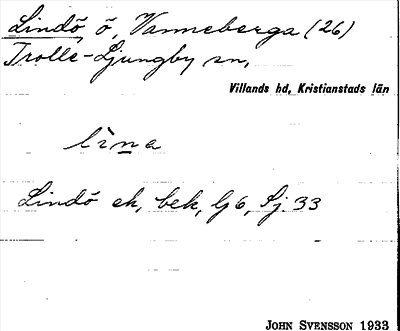 Lindö, ö, Vanneberga (26)
Trolle-Ljungby sn,
Villands hd, Kristianstads län
lìna
Lindö ek, bek, Lj 6, Sj. 33
JOHN SVENSSON 1933